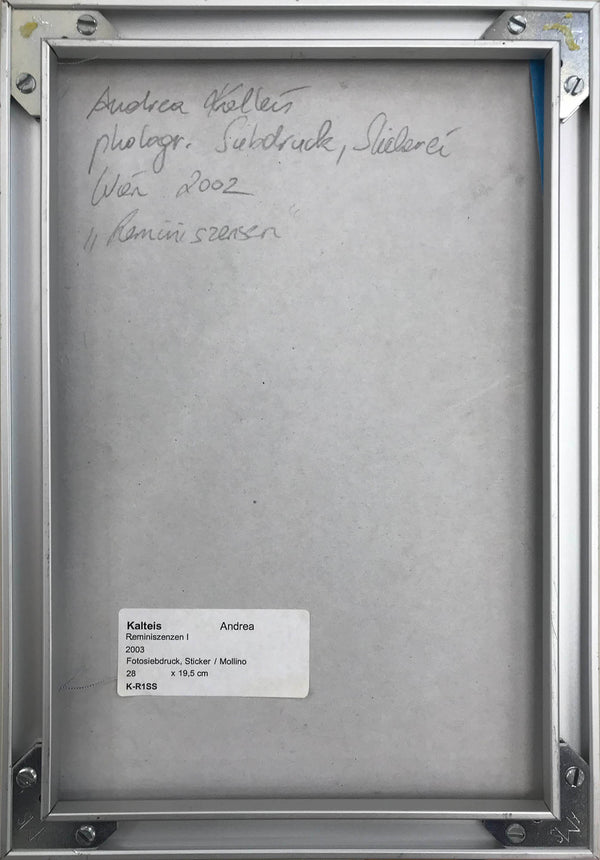 Andrea Kalteis
photogr. Siebdruck, Stickerei
Wien 2002
„Reminiszensen“
Kalteis Andrea
Reminiszenzen I
2003
Fotosiebdruck, Sticker / Mollino
28 x 19,5 cm
K-R1SS